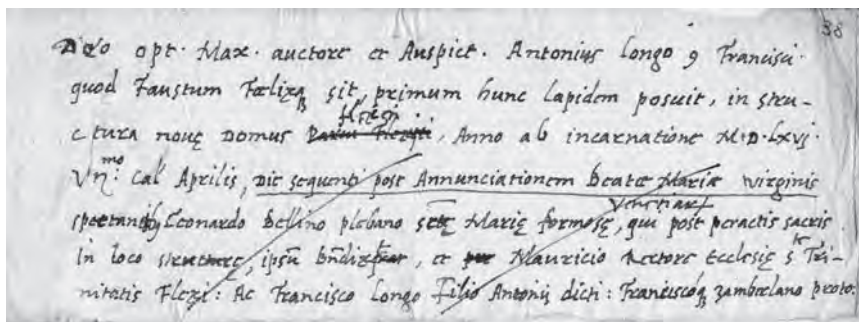 38
Deo opt. Max. auctore et Auspice. Antonius Longo q Francisci
quod Faustum Fœlixq sit, primum hunc lapidem posuit, in stru-
ctura novę Domus Flezij, Anno ab incarnatione M.D.Lxvj.
Vnmo. Cal Aprilis, Die sequenti post Annunciationem beatæ Mariæ virginis
Leonardo Bellino plebano sctę Marię formosę, Venetiar qui post peractis sacris
in loco structurę, ipsū, et Mauricio Rectore Ecclesię s. Tri-
nitatis Flezi: Ac Francisco Longo Filio Antonij dicti: Franciscoq zambelano proto: